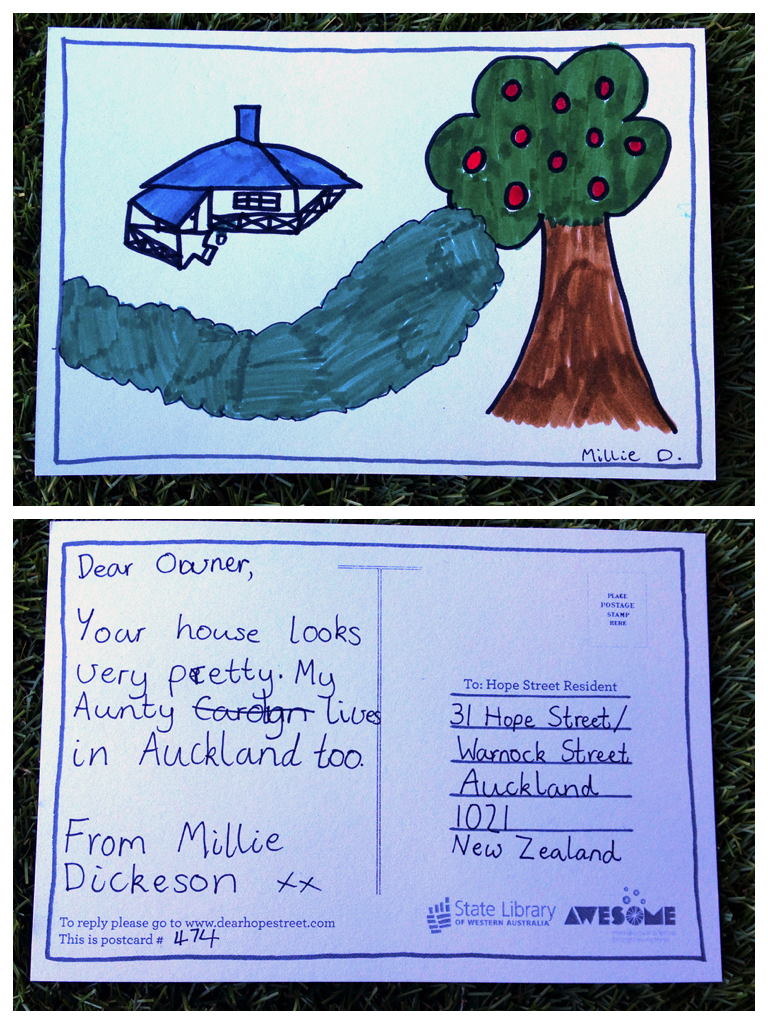 Millie D.
Dear Owner,
Your house looks
very pretty. My
Aunty lives
in Auckland too.
From Millie
Dickeson xx
To reply please go to www.dearhopestreet.com
This is postcard # 474
PLACE
POSTAGE
STAMP
HERE
To: Hope Street Resident
31 Hope Street/
Warnock Street
Auckland
1021
New Zealand
State Library
OF WESTERN AUSTRALIA
AWESOME